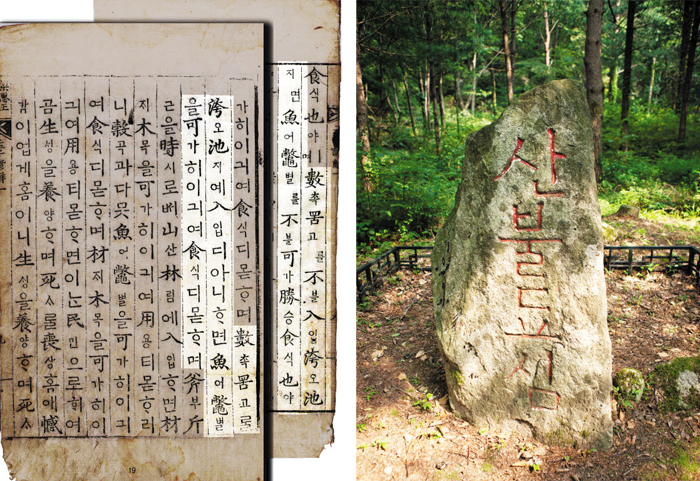 食식也야ㅣ며數촉罟고를不블入입洿오池
지면魚어鼈별를不블可가勝승食식也야
가히이긔여食식디몯ᄒᆞ며數촉罟고ᄅᆞᆯ
洿오池지예入입디아니ᄒᆞ면魚어鼈별
을可가히이긔여食식디몯ᄒᆞ며斧부斤
근을時시로ᄡᅥ山산林림에入입ᄒᆞ면材
ᄌᆡ木목을可가히이긔여用용티몯ᄒᆞ리
니穀곡과다ᄆᆞᆺ魚어鼈별을可가히이긔
여食식디몯ᄒᆞ며材ᄌᆡ木목을可가히이
긔여用용티몯ᄒᆞ면이ᄂᆞᆫ民민으로ᄒᆞ여
곰生ᄉᆡᆼ을養양ᄒᆞ며死ᄉᆞᄅᆞᆯ喪상홈애憾
감이업게홈이니生ᄉᆡᆼ을養양ᄒᆞ며死ᄉᆞ
19
산불됴심